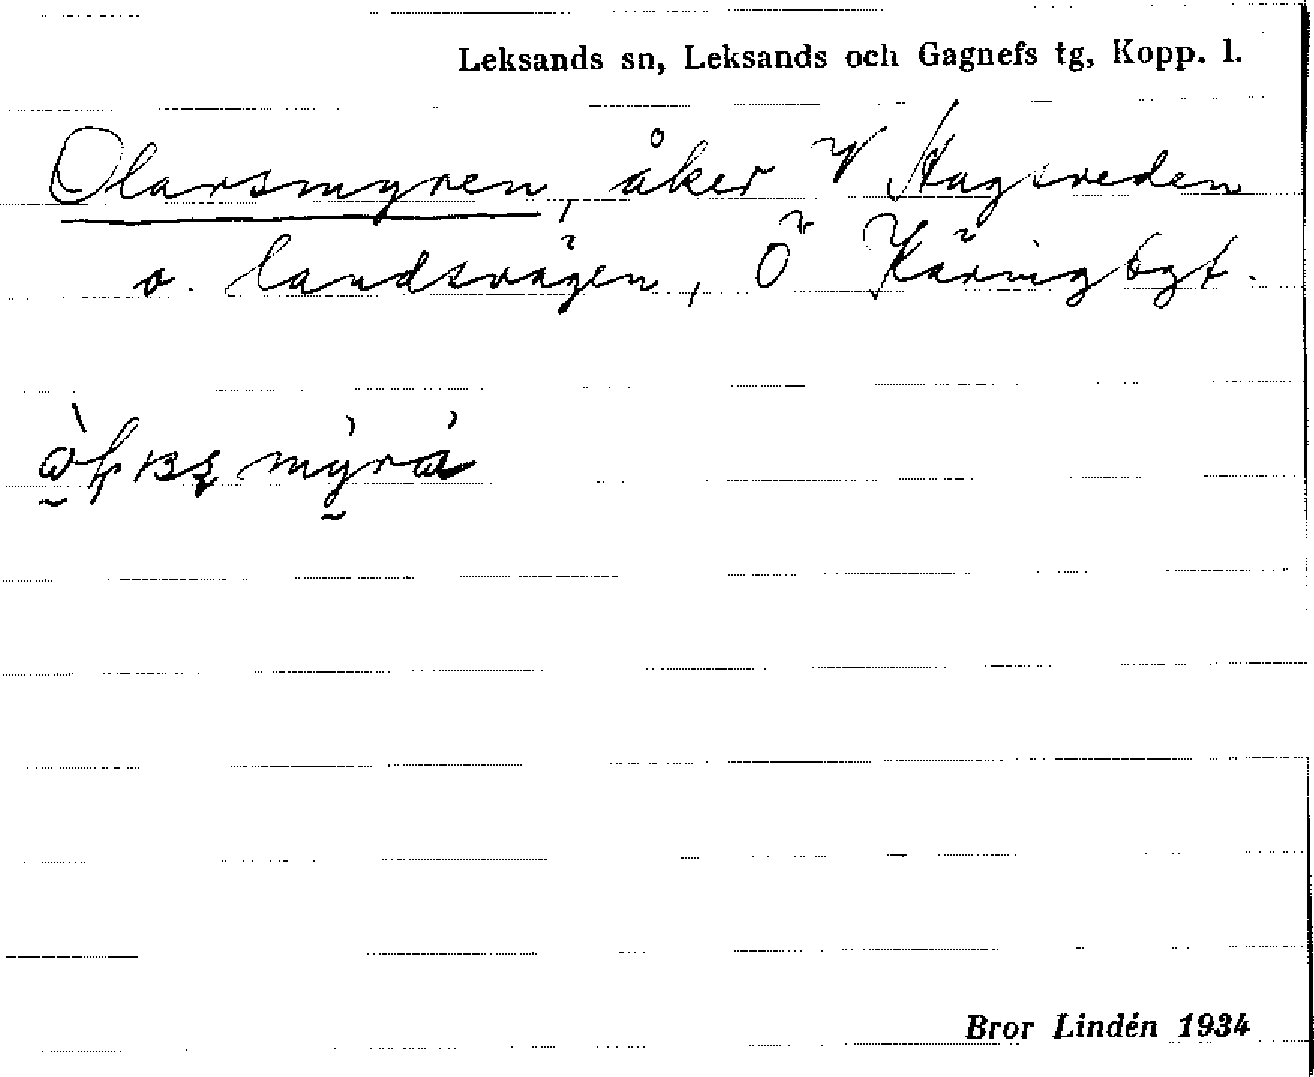 Leksands sn, Leksands och Gagnefs tg, Kopp. l.
Olarsmyren, åker V Hagsveden
o. landsvägen, Ö Kärvigbgt.
Bror Lindén 1934